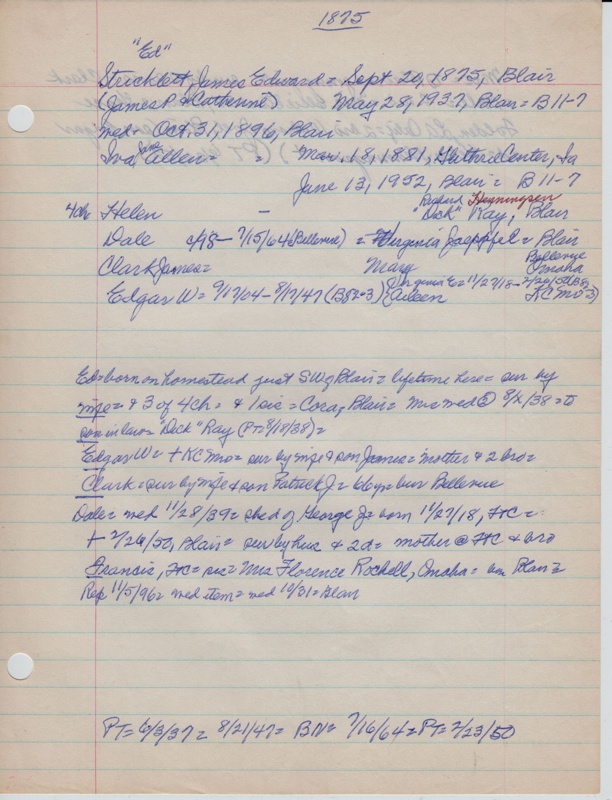 1875
"Ed"
Stricklett, James Edward = Sept 20, 1875, Blair
(James P. & Catherine) May 28, 1937, Blair = B 11-7
wed = Oct. 31, 1896, Blair
Iva Jane Allen = = Mar. 18, 1881, Guthrie Center, Ia
June 13, 1952, Blair = B 11-7
Richard Hemmingsen
4ch Helen - "Dick" Ray, Blair
Dale c/98 - 7/15/64 (Bellevue) = Virginia Jaepffel = Blair
Bellevue
Clark James = Mary Omaha
(Virginia E = 11/27/18 - 2/20/50
Edgar W = 9/17/04 - 8/17/47 (B82-3) Aileen KC Mo
Ed = born on homestead just SW of Blair = lifetime here = sur by
wife = & 3 of 4ch = & 1 sis = Cora, Blair = Mrs wed @ 8/X/38 = to
son in law = "Dick" Ray (PT = 8/18/38) =
Edgar W = + KC Mo = sur by wife & son James = mother & 2 bro =
Clark = sur by wife & son Patrick J = 66yr = bur Bellevue
Dale = wed 11/28/39 = she d of George J = born 11/27/18, FtC =
+ 2/20/50, Blair = sur by hus & 2d = mother @ FtC & bro
Francis, FtC = sis = Mrs Florence Rochell, Omaha = Blair =
Rep 11/5/96 = wed item = wed 10/31 = Blair
PT = 6/3/37 = 8/21/47 = BN = 7/16/64 = PT = 2/23/50